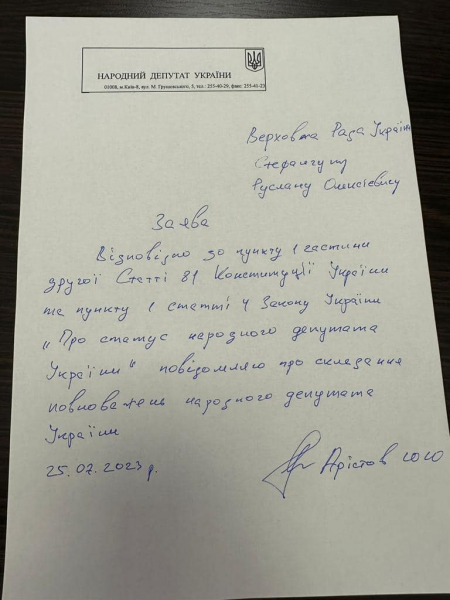 НАРОДНИЙ ДЕПУТАТ УКРАЇНИ
01008, м.Київ-8, вул. М. Грушевського, 5, тел.: 255-40-29, факс: 255-41-23
Верховна Рада України
Стефанчуку
Руслану Олексієвичу
Заява
Відповідно до пункту 1 частини
другої Статті 81 Конституції України
та пункту 1 статті 4 Закону України
„Про статус народного депутата
України“ повідомляю про складання
повноважень народного депутата
України
25.07.2023 р.
Арістов Ю.Ю